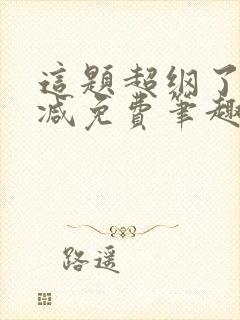 這題超綱了
減免費筆趣
路遥